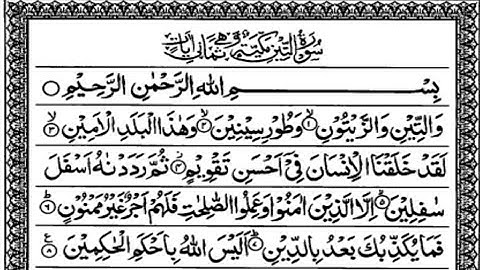 سُوْرَةُ التِّيْنِ مَكِّيَّةٌ وَّهِيَ ثَمَانِيْ اٰيَاتٍ
بِسْمِ اللّٰهِ الرَّحْمٰنِ الرَّحِيْمِ ○
وَالتِّيْنِ وَالزَّيْتُوْنِ ۙ﴿۱﴾ وَطُوْرِ سِيْنِيْنَ ۙ﴿۲﴾ وَهٰذَا الْبَلَدِ الْاَمِيْنِ ۙ﴿۳﴾
لَقَدْ خَلَقْنَا الْاِنْسَانَ فِيْٓ اَحْسَنِ تَقْوِيْمٍ ۫﴿۴﴾ ثُمَّ رَدَدْنٰهُ اَسْفَلَ
سٰفِلِيْنَ ۙ﴿۵﴾ اِلَّا الَّذِيْنَ اٰمَنُوْا وَعَمِلُوا الصّٰلِحٰتِ فَلَهُمْ اَجْرٌ غَيْرُ مَمْنُوْنٍ ؕ﴿۶﴾
فَمَا يُكَذِّبُكَ بَعْدُ بِالدِّيْنِ ؕ﴿۷﴾ اَلَيْسَ اللّٰهُ بِاَحْكَمِ الْحٰكِمِيْنَ ﴿۸﴾ ع